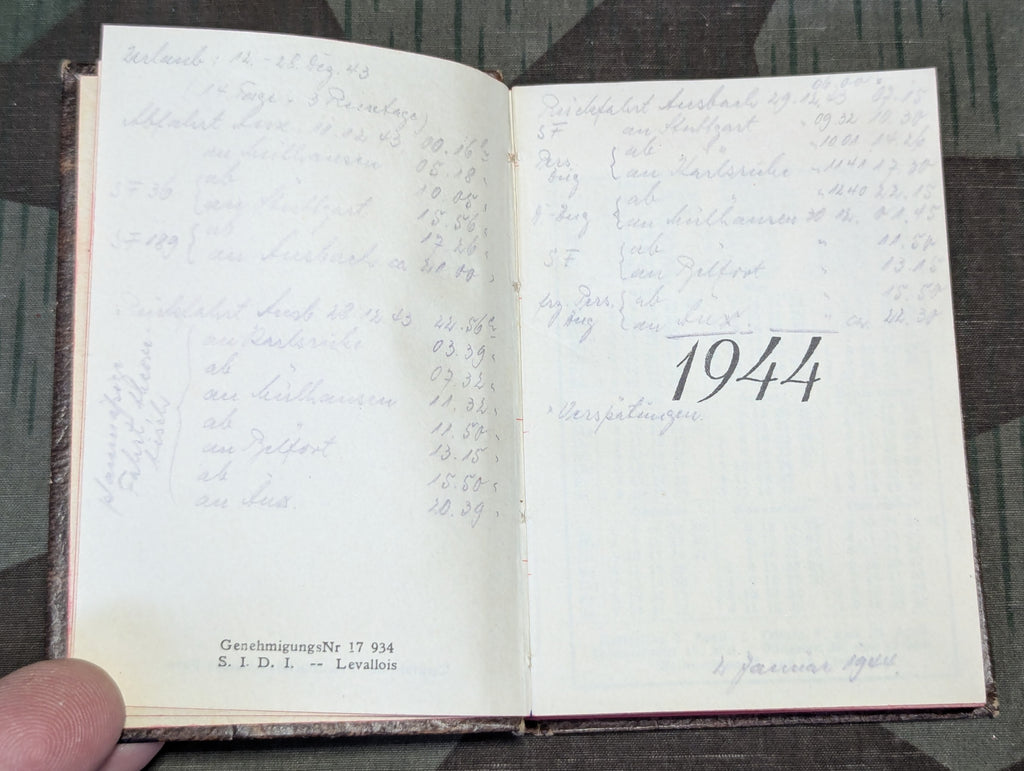 Urlaub: 12. - 28. Dez. 43
(14 Tage + 3 Reisetage)
Abfahrt Aux. 11.12.43 00.16
an Mülhausen 05.18
SF 36 ab " 10.05
an Stuttgart 15.56
SF 189 ab 17.26
an Ansbach ca 21.00
Rückfahrt Ansb. 28.12.43 22.56
an Karlsruhe 03.39
ab 07.32
an Mülhausen 11.32
ab 11.50
an Belfort 13.15
ab 15.50
an Aux. 20.39
planmäßige
Fahrt
GenehmigungsNr 17 934
S. I. D. I. -- Levallois
06.00
Rückfahrt Ansbach 29.12.43 07.15
SF an Stuttgart " 09.32 10.30
Pers. ab " " 10.01 14.26
Zug an Karlsruhe " 11.41 17.30
ab " " 12.40 22.15
D-Zug an Mülhausen 30.12. 01.45
SF ab " 11.50
an Belfort " 13.15
frz. Pers. ab 15.50
Zug an Aux. " ca. 22.30
1944
Verspätungen.
Januar 1944.